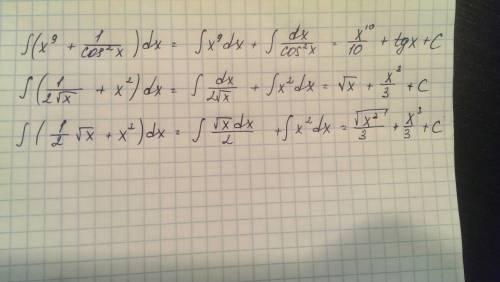 ∫(x⁹ + 1/cos²x)dx = ∫x⁹dx + ∫dx/cos²x = x¹⁰/10 + tgx + C
∫(1/2√x + x²)dx = ∫dx/2√x + ∫x²dx = √x + x³/3 + C
∫(1/2 √x + x²)dx = ∫√x dx/2 + ∫x²dx = √x³/3 + x³/3 + C